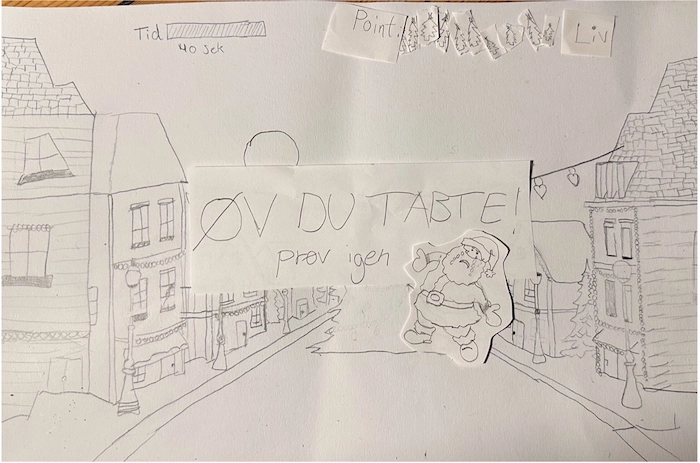 Tid
40 sek
Point
Liv
ØV DU TABTE!
prøv igen